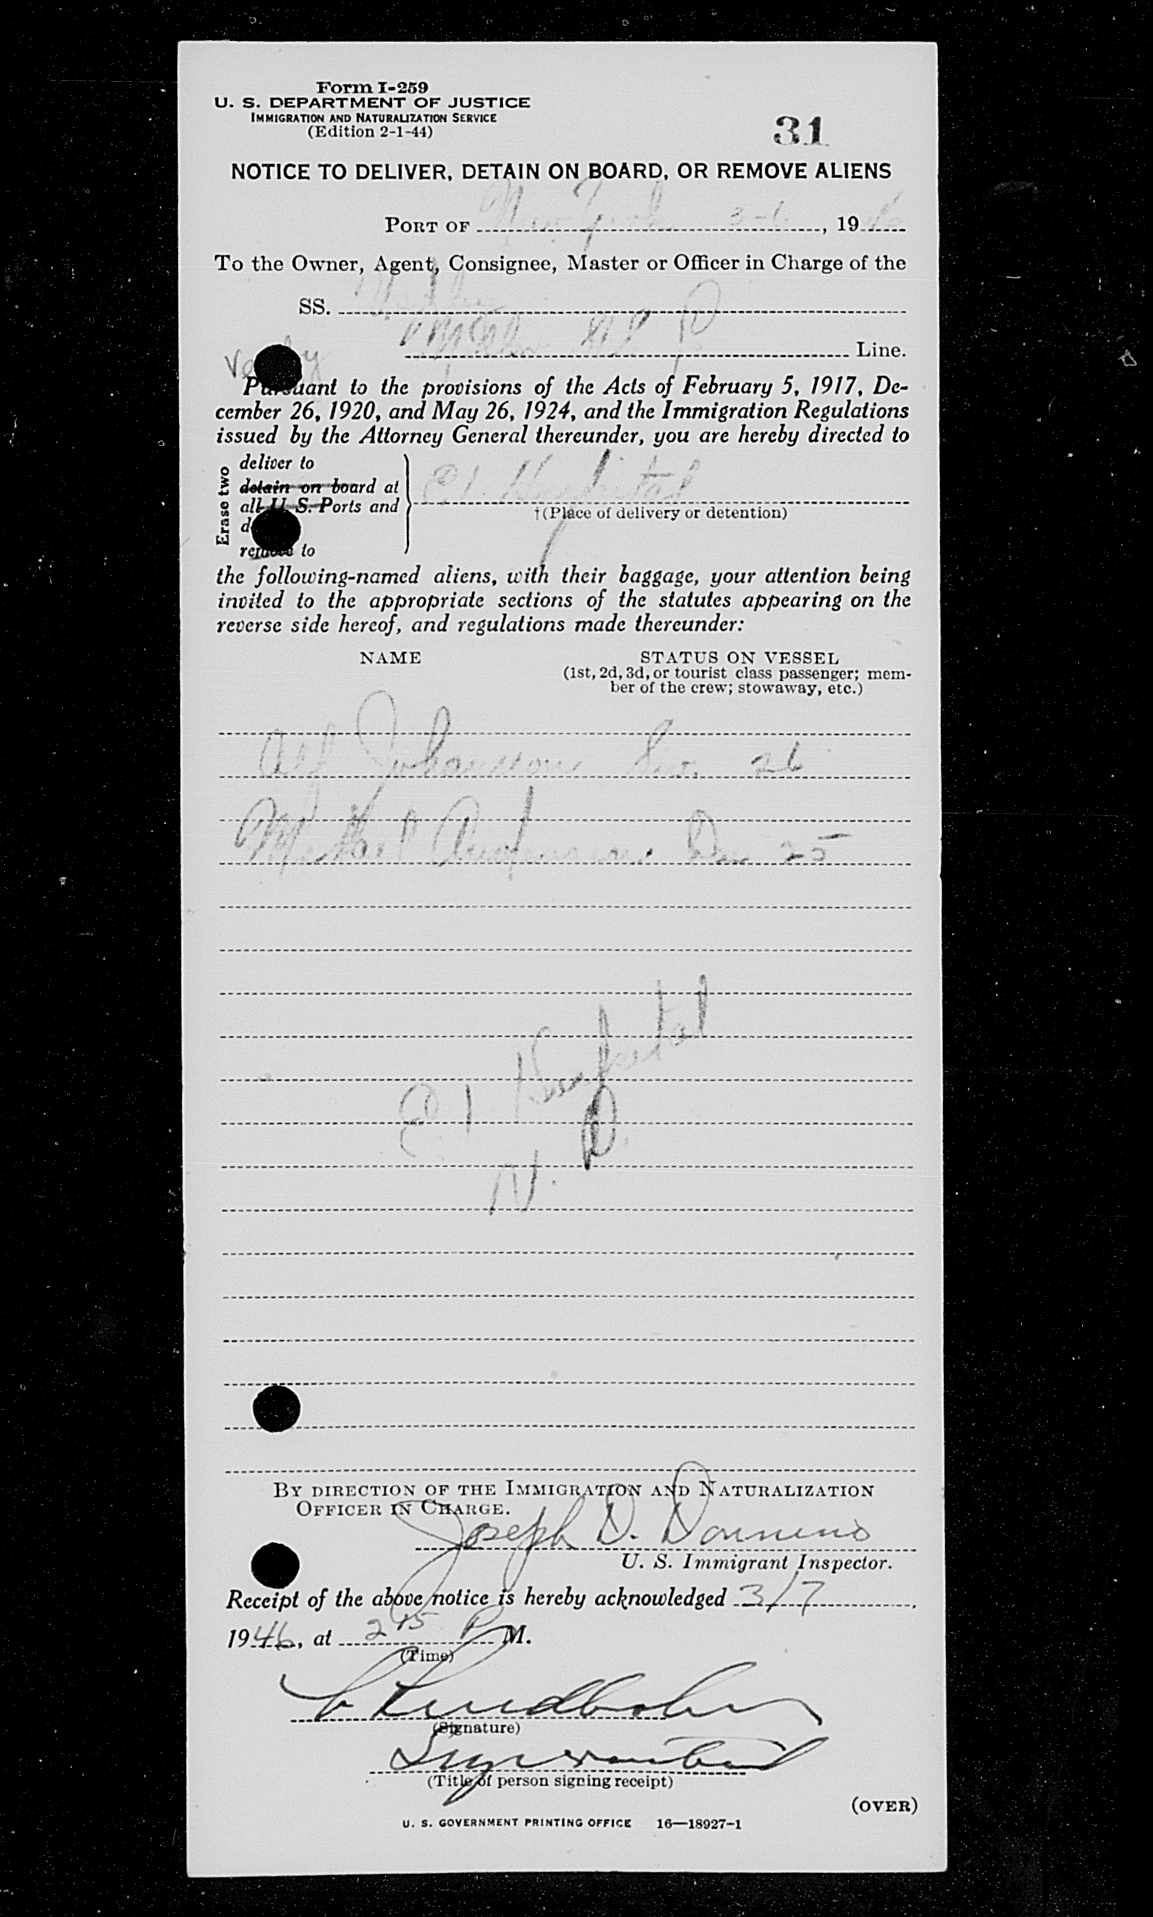 Form I-259
U. S. DEPARTMENT OF JUSTICE
IMMIGRATION AND NATURALIZATION SERVICE
(Edition 2-1-44)
31
NOTICE TO DELIVER, DETAIN ON BOARD, OR REMOVE ALIENS
PORT OF New York 3-6, 1946
To the Owner, Agent, Consignee, Master or Officer in Charge of the
SS.
Line.
Pursuant to the provisions of the Acts of February 5, 1917, De-
cember 26, 1920, and May 26, 1924, and the Immigration Regulations
issued by the Attorney General thereunder, you are hereby directed to
Erase two
deliver to
detain on board at
all U. S. Ports and
remove to
E I Hospital
†(Place of delivery or detention)
the following-named aliens, with their baggage, your attention being
invited to the appropriate sections of the statutes appearing on the
reverse side hereof, and regulations made thereunder:
NAME STATUS ON VESSEL
(1st, 2d, 3d, or tourist class passenger; mem-
ber of the crew; stowaway, etc.)
Alf Johansson 26
25
E I Hospital
By DIRECTION OF THE IMMIGRATION AND NATURALIZATION
OFFICER IN CHARGE.
Joseph D.
U. S. Immigrant Inspector.
Receipt of the above notice is hereby acknowledged 3/7,
1946, at 2 15 P M.
(Time)
(Signature)
(Title of person signing receipt)
(OVER)
U. S. GOVERNMENT PRINTING OFFICE 16—18927-1